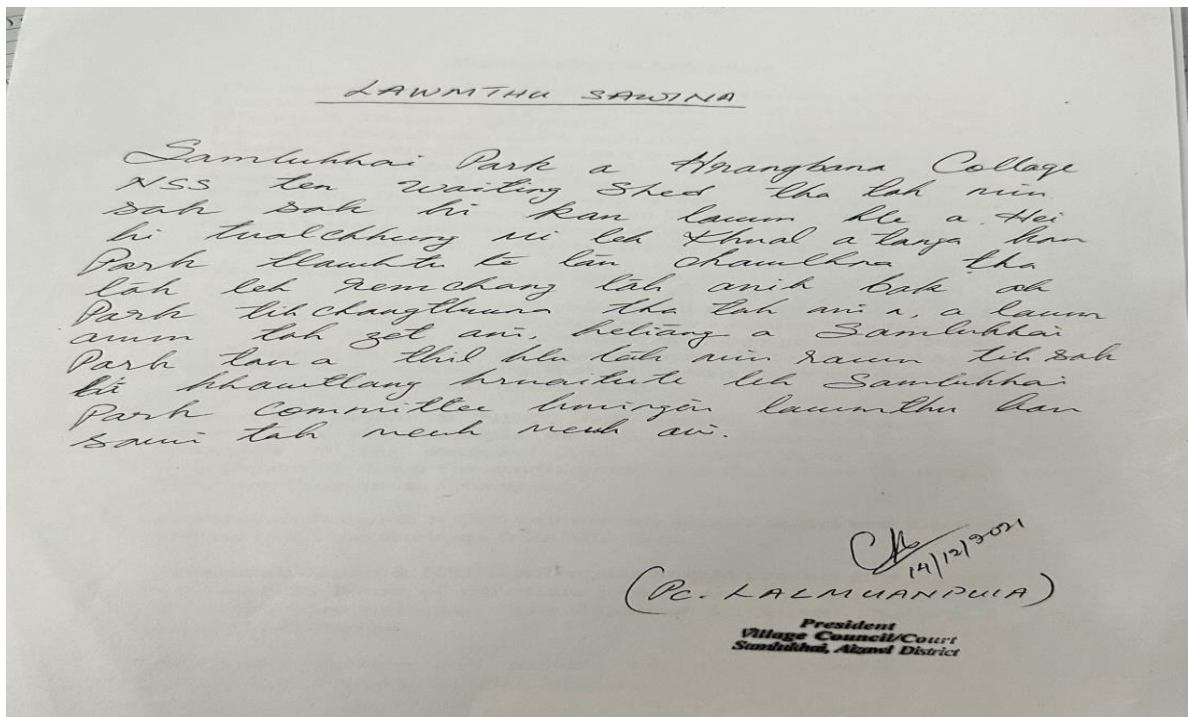 LAWMTHU SAWINA
Samlukhai Park a Hrangbana Collage
NSS ten Waiting Shed tha tak min
sak sak hi kan lawm hle a. Hei
hi tualchhung mi leh Khual a tanga kan
Park tlawhtu te tân chawlhna tha
tâk leh remchang tâk anih bak ah
Park tihchangtluna tha tak ani a, a lawm
awm tak zet ani, hetiang a Samlukhai
Park tan a thil hlu tâk min rawn tih sak
khawtlang hruaitute leh Samlukhai
Park Committee hmingin lawmthu kan
sawi tak meuh meuh ani.
14/12/2021
(PC. LALMUANPUIA)
President
Village Council/Court
Samlukhai, Aizawl District